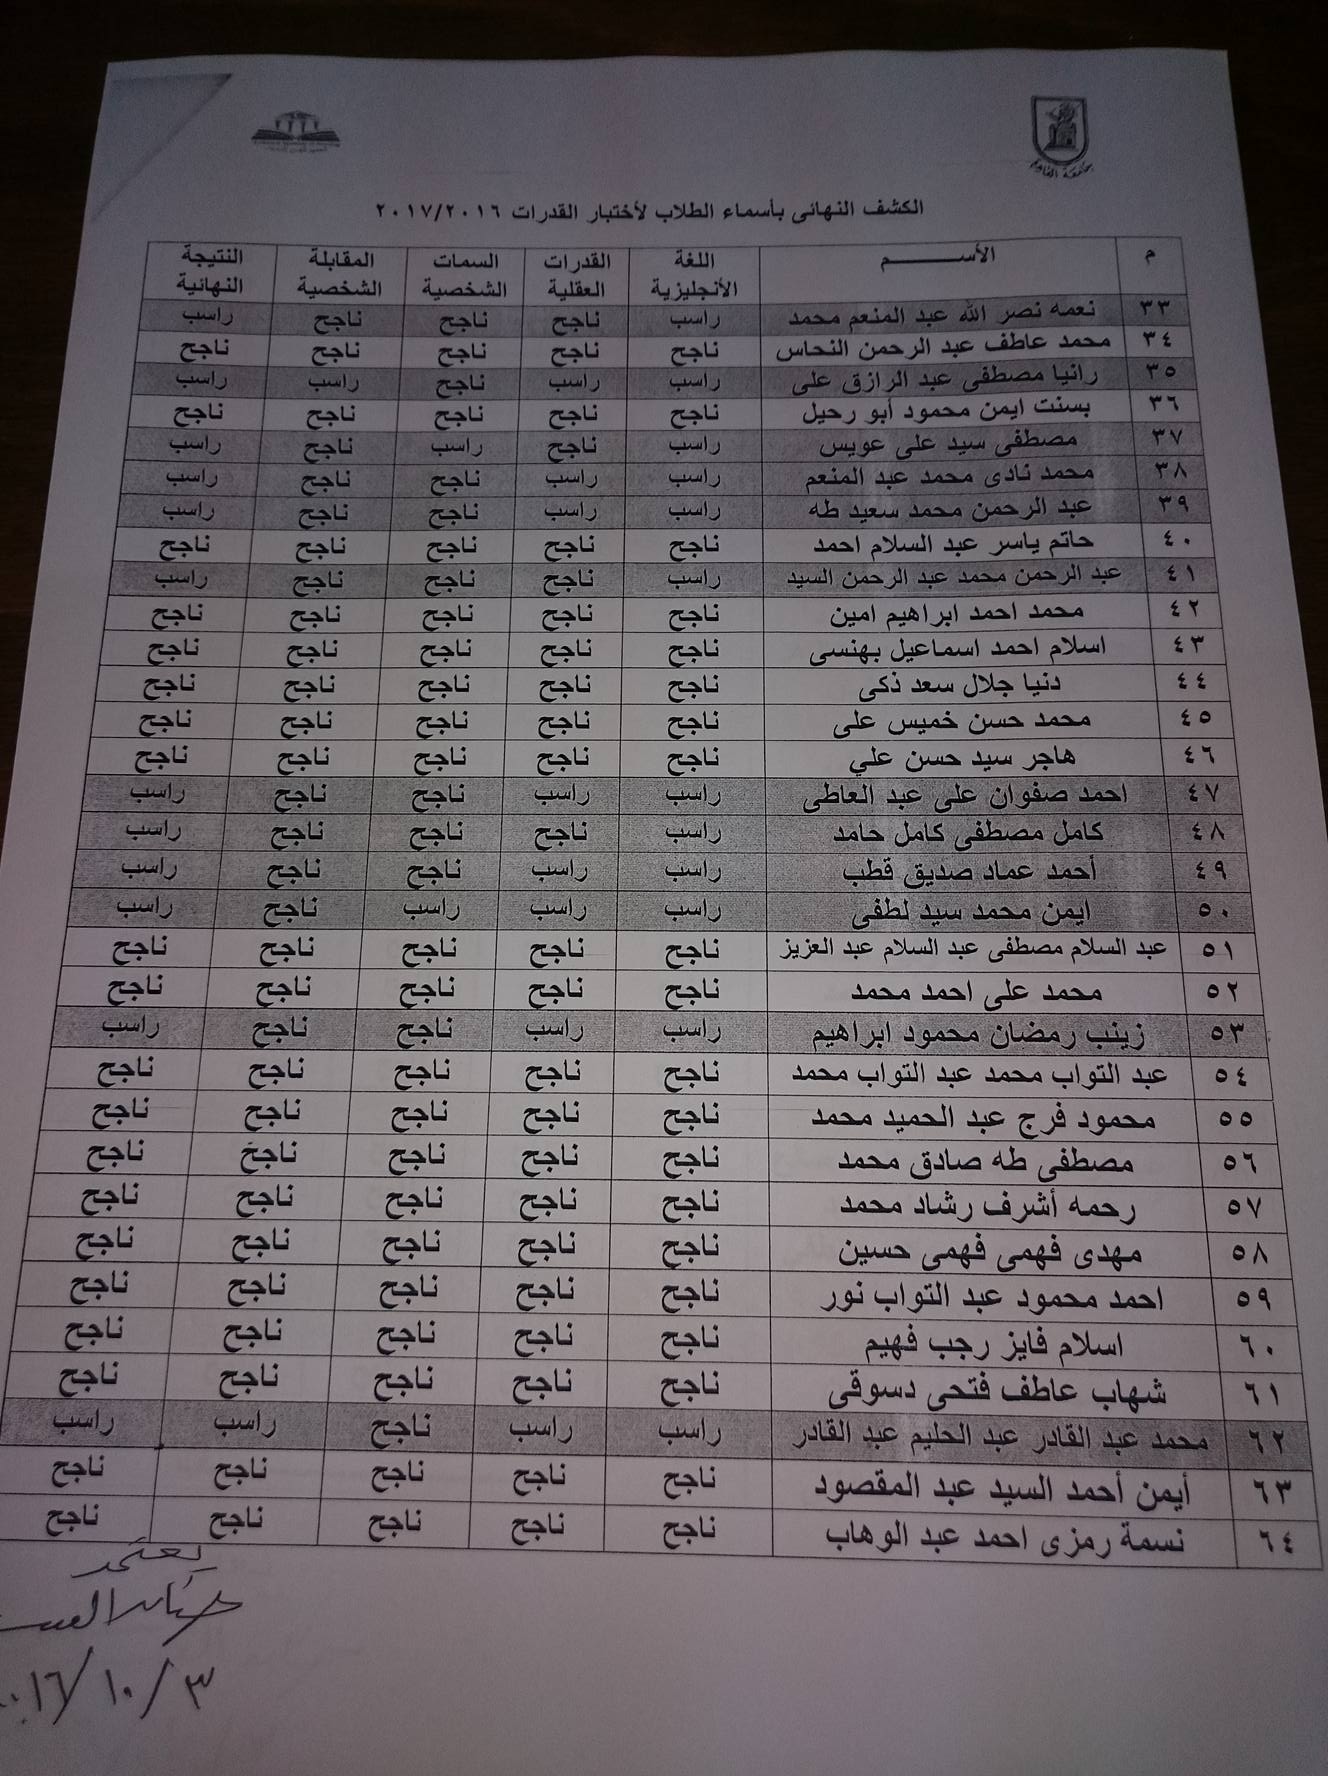 جامعة الفيوم
الكشف النهائى بأسماء الطلاب لأختبار القدرات ٢٠١٧/٢٠١٦
م الأســـــــم اللغة الأنجليزية القدرات العقلية السمات الشخصية المقابلة الشخصية النتيجة النهائية
٣٣ نعمه نصر الله عبد المنعم محمد راسب ناجح ناجح ناجح راسب
٣٤ محمد عاطف عبد الرحمن النحاس ناجح ناجح ناجح ناجح ناجح
٣٥ رانيا مصطفى عبد الرازق على راسب راسب ناجح راسب راسب
٣٦ بسنت ايمن محمود أبو رحيل ناجح ناجح ناجح ناجح ناجح
٣٧ مصطفى سيد على عويس راسب ناجح راسب ناجح راسب
٣٨ محمد نادى محمد عبد المنعم راسب راسب ناجح ناجح راسب
٣٩ عبد الرحمن محمد سعيد طه راسب راسب ناجح ناجح راسب
٤٠ حاتم ياسر عبد السلام احمد ناجح ناجح ناجح ناجح ناجح
٤١ عبد الرحمن محمد عبد الرحمن السيد راسب ناجح ناجح ناجح راسب
٤٢ محمد احمد ابراهيم امين ناجح ناجح ناجح ناجح ناجح
٤٣ اسلام احمد اسماعيل بهنسى ناجح ناجح ناجح ناجح ناجح
٤٤ دنيا جلال سعد ذكى ناجح ناجح ناجح ناجح ناجح
٤٥ محمد حسن خميس على ناجح ناجح ناجح ناجح ناجح
٤٦ هاجر سيد حسن علي ناجح ناجح ناجح ناجح ناجح
٤٧ احمد صفوان على عبد العاطى راسب راسب ناجح ناجح راسب
٤٨ كامل مصطفى كامل حامد راسب ناجح ناجح ناجح راسب
٤٩ أحمد عماد صديق قطب راسب راسب ناجح ناجح راسب
٥٠ ايمن محمد سيد لطفى راسب راسب راسب ناجح راسب
٥١ عبد السلام مصطفى عبد السلام عبد العزيز ناجح ناجح ناجح ناجح ناجح
٥٢ محمد على احمد محمد ناجح ناجح ناجح ناجح ناجح
٥٣ زينب رمضان محمود ابراهيم راسب راسب ناجح ناجح راسب
٥٤ عبد التواب محمد عبد التواب محمد ناجح ناجح ناجح ناجح ناجح
٥٥ محمود فرج عبد الحميد محمد ناجح ناجح ناجح ناجح ناجح
٥٦ مصطفى طه صادق محمد ناجح ناجح ناجح ناجخ ناجح
٥٧ رحمه أشرف رشاد محمد ناجح ناجح ناجح ناجح ناجح
٥٨ مهدى فهمى فهمى حسين ناجح ناجح ناجح ناجح ناجح
٥٩ احمد محمود عبد التواب نور ناجح ناجح ناجح ناجح ناجح
٦٠ اسلام فايز رجب فهيم ناجح ناجح ناجح ناجح ناجح
٦١ شهاب عاطف فتحى دسوقى ناجح ناجح ناجح ناجح ناجح
٦٢ محمد عبد القادر عبد الحليم عبد القادر راسب راسب ناجح راسب راسب
٦٣ أيمن أحمد السيد عبد المقصود ناجح ناجح ناجح ناجح ناجح
٦٤ نسمة رمزى احمد عبد الوهاب ناجح ناجح ناجح ناجح ناجح
يعتمد
٣/١٠/٢٠١٦